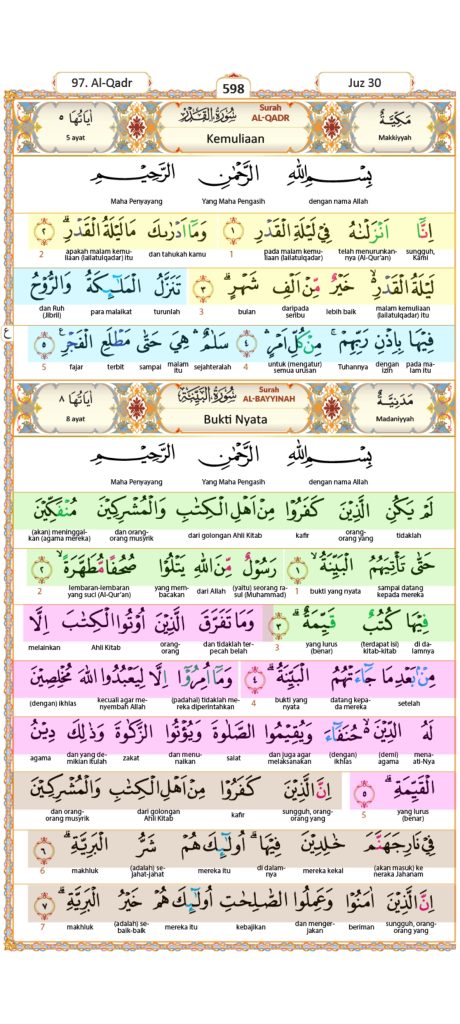 97. Al-Qadr
598
Juz 30
اٰيَاتُهَا ٥
5 ayat
سُوْرَةُ الْقَدْرِ
Surah
AL-QADR
Kemuliaan
مَكِّيَّةٌ
Makkiyyah
بِسْمِ اللّٰهِ الرَّحْمٰنِ الرَّحِيْمِ
dengan nama Allah Yang Maha Pengasih Maha Penyayang
اِنَّآ اَنْزَلْنٰهُ فِيْ لَيْلَةِ الْقَدْرِ ۙ ١ وَمَآ اَدْرٰىكَ مَا لَيْلَةُ الْقَدْرِ ۗ ٢
sungguh, Kami telah menurunkan-nya (Al-Qur'an) pada malam kemu-liaan (lailatulqadar) 1 dan tahukah kamu apakah malam kemu-liaan (lailatulqadar) itu 2
لَيْلَةُ الْقَدْرِ ۙ خَيْرٌ مِّنْ اَلْفِ شَهْرٍ ۗ ٣ تَنَزَّلُ الْمَلٰۤىِٕكَةُ وَالرُّوْحُ
malam kemuliaan (lailatulqadar) itu lebih baik daripada seribu bulan 3 turunlah para malaikat dan Ruh (Jibril)
فِيْهَا بِاِذْنِ رَبِّهِمْ ۚ مِنْ كُلِّ اَمْرٍ ۛ ٤ سَلٰمٌ ۛ هِيَ حَتّٰى مَطْلَعِ الْفَجْرِ ࣖ ٥
pada ma-lam itu dengan izin Tuhannya untuk (mengatur) semua urusan 4 sejahteralah malam itu sampai terbit fajar 5
ع
اٰيَاتُهَا ٨
8 ayat
سُوْرَةُ الْبَيِّنَةِ
Surah
AL-BAYYINAH
Bukti Nyata
مَدَنِيَّةٌ
Madaniyyah
بِسْمِ اللّٰهِ الرَّحْمٰنِ الرَّحِيْمِ
dengan nama Allah Yang Maha Pengasih Maha Penyayang
لَمْ يَكُنِ الَّذِيْنَ كَفَرُوْا مِنْ اَهْلِ الْكِتٰبِ وَالْمُشْرِكِيْنَ مُنْفَكِّيْنَ
tidaklah orang-orang yang kafir dari golongan Ahli Kitab dan orang-orang musyrik (akan) meninggal-kan (agama mereka)
حَتّٰى تَأْتِيَهُمُ الْبَيِّنَةُ ۙ ١ رَسُوْلٌ مِّنَ اللّٰهِ يَتْلُوْا صُحُفًا مُّطَهَّرَةً ۙ ٢
sampai datang kepada mereka bukti yang nyata 1 (yaitu) seorang rasul (Muhammad) dari Allah yang mem-bacakan lembaran-lembaran yang suci (Al-Qur'an) 2
فِيْهَا كُتُبٌ قَيِّمَةٌ ۗ ٣ وَمَا تَفَرَّقَ الَّذِيْنَ اُوْتُوا الْكِتٰبَ اِلَّا
di da-lamnya (terdapat isi) kitab-kitab yang lurus (benar) 3 dan tidaklah ter-pecah belah orang-orang Ahli Kitab melainkan
مِنْۢ بَعْدِ مَا جَاۤءَتْهُمُ الْبَيِّنَةُ ۗ ٤ وَمَآ اُمِرُوْٓا اِلَّا لِيَعْبُدُوا اللّٰهَ مُخْلِصِيْنَ
setelah datang kepa-da mereka bukti yang nyata 4 (padahal) tidaklah me-reka diperintahkan kecuali agar me-nyembah Allah (dengan) ikhlas
لَهُ الدِّيْنَ ۙ حُنَفَاۤءَ وَيُقِيْمُوا الصَّلٰوةَ وَيُؤْتُوا الزَّكٰوةَ وَذٰلِكَ دِيْنُ
mena-ati-Nya (demi) agama (dengan) ikhlas dan juga agar melaksanakan salat dan me-naikan zakat dan yang de-mikian itulah agama
الْقَيِّمَةِ ۗ ٥ اِنَّ الَّذِيْنَ كَفَرُوْا مِنْ اَهْلِ الْكِتٰبِ وَالْمُشْرِكِيْنَ
yang lurus (benar) 5 sungguh, orang-orang yang kafir dari golongan Ahli Kitab dan orang-orang musyrik
فِيْ نَارِ جَهَنَّمَ خٰلِدِيْنَ فِيْهَا ۗ اُولٰۤىِٕكَ هُمْ شَرُّ الْبَرِيَّةِ ۗ ٦
(akan masuk) ke neraka Jahanam mereka kekal di dalam-nya mereka itu (adalah) se-jahat-jahat makhluk 6
اِنَّ الَّذِيْنَ اٰمَنُوْا وَعَمِلُوا الصّٰلِحٰتِ اُولٰۤىِٕكَ هُمْ خَيْرُ الْبَرِيَّةِ ۗ ٧
sungguh, orang-orang yang beriman dan menger-jakan kebajikan mereka itu (adalah) se-baik-baik makhluk 7